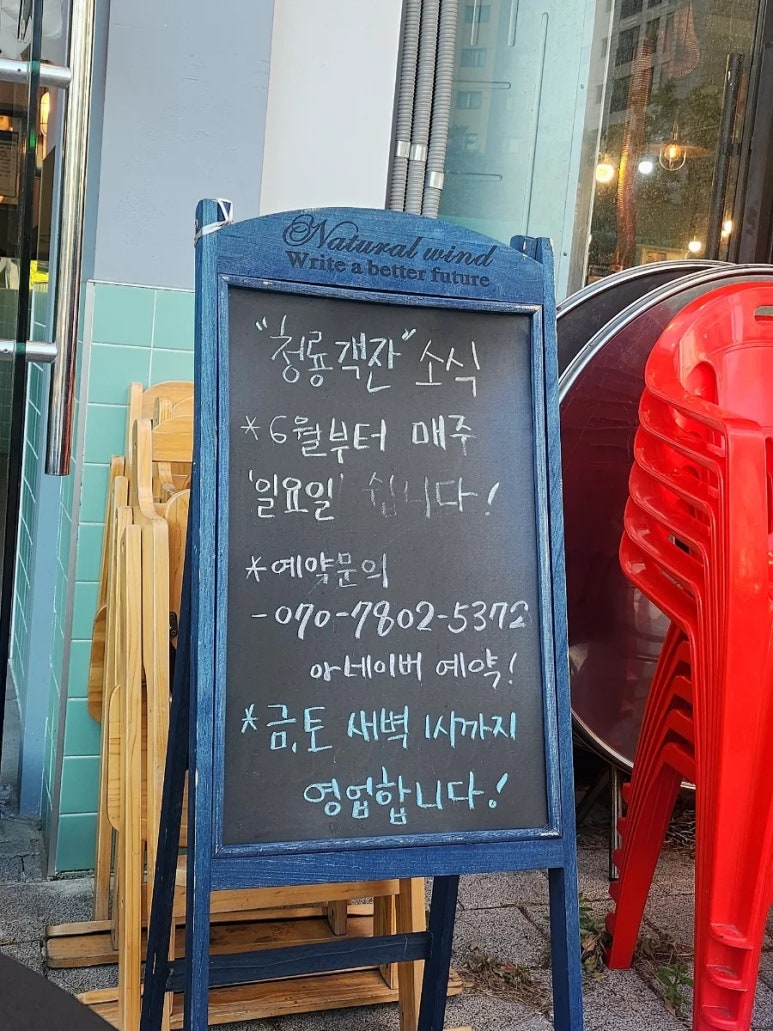 Natural wind
Write a better future
"청룡객잔" 소식
* 6월부터 매주
'일요일' 쉽니다!
* 예약문의
- 070-7802-5372
아네이버 예약!
* 금,토 새벽 1시까지
영업합니다!